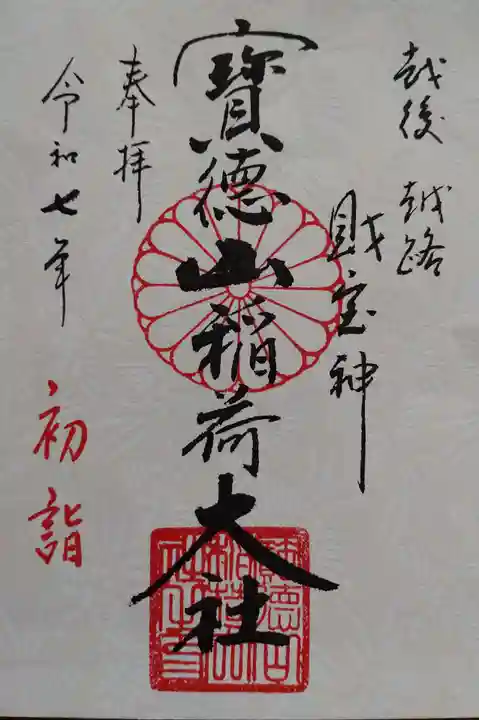 越後 越路
財宝神
寳徳山稲荷大社
奉拝
令和七年
初詣